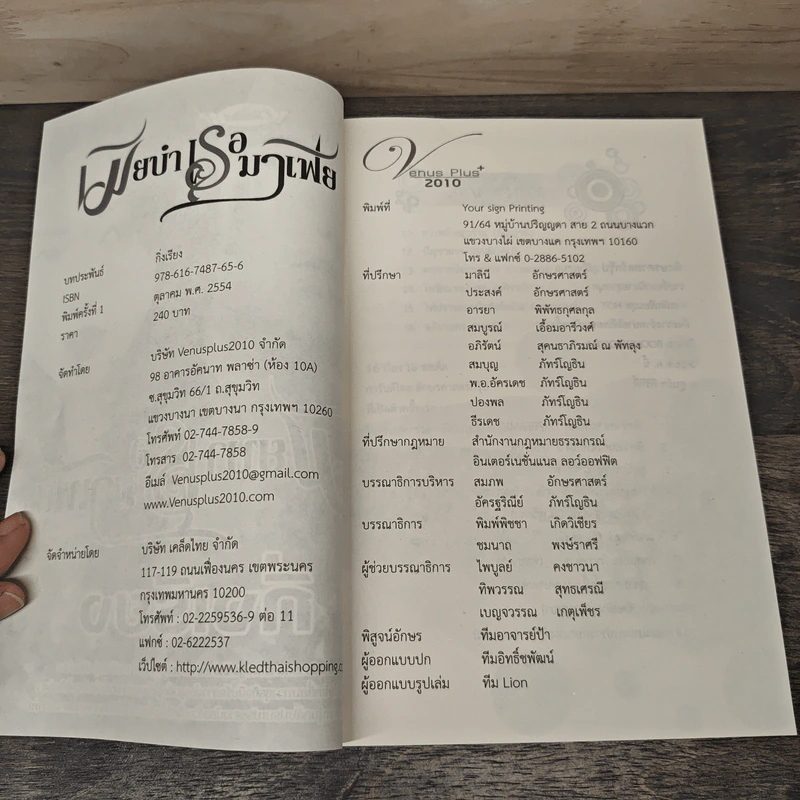 เมียบำเรอมาเฟีย
บทประพันธ์ กิ่งเรียง
ISBN 978-616-7487-65-6
พิมพ์ครั้งที่ 1 ตุลาคม พ.ศ. 2554
ราคา 240 บาท
จัดทำโดย บริษัท Venusplus2010 จำกัด
98 อาคารอัคนาท พลาซ่า (ห้อง 10A)
ซ.สุขุมวิท 66/1 ถ.สุขุมวิท
แขวงบางนา เขตบางนา กรุงเทพฯ 10260
โทรศัพท์ 02-744-7858-9
โทรสาร 02-744-7858
อีเมล์ Venusplus2010@gmail.com
www.Venusplus2010.com
จัดจำหน่ายโดย บริษัท เคล็ดไทย จำกัด
117-119 ถนนเฟื่องนคร เขตพระนคร
กรุงเทพมหานคร 10200
โทรศัพท์ : 02-2259536-9 ต่อ 11
แฟกซ์ : 02-6222537
เว็ปไซต์ : http://www.kledthaishopping.c
Venus Plus+
2010
พิมพ์ที่ Your sign Printing
91/64 หมู่บ้านปริญญดา สาย 2 ถนนบางแวก
แขวงบางไผ่ เขตบางแค กรุงเทพฯ 10160
โทร & แฟกซ์ 0-2886-5102
ที่ปรึกษา มาลินี อักษรศาสตร์
ประสงค์ อักษรศาสตร์
อารยา พิพัทธกุศลกุล
สมบูรณ์ เอื้อมอารีวงศ์
อภิรัตน์ สุคนธาภิรมณ์ ณ พัทลุง
สมบุญ ภัทร์โญธิน
พ.อ.อัครเดช ภัทร์โญธิน
ปองพล ภัทร์โญธิน
ธีรเดช ภัทร์โญธิน
ที่ปรึกษากฎหมาย สำนักงานกฎหมายธรรมกรณ์
อินเตอร์เนชั่นแนล ลอว์ออฟฟิต
บรรณาธิการบริหาร สมภพ อักษรศาสตร์
อัครฐริณีย์ ภัทร์โญธิน
บรรณาธิการ พิมพ์พิชชา เกิดวิเชียร
ชมนาถ พงษ์ราศรี
ผู้ช่วยบรรณาธิการ ไพบูลย์ คงชาวนา
ทิพวรรณ สุทธเศรณี
เบญจวรรณ เกตุเพ็ชร
พิสูจน์อักษร ทีมอาจารย์ป้า
ผู้ออกแบบปก ทีมอิทธิ์ชพัฒน์
ผู้ออกแบบรูปเล่ม ทีม Lion